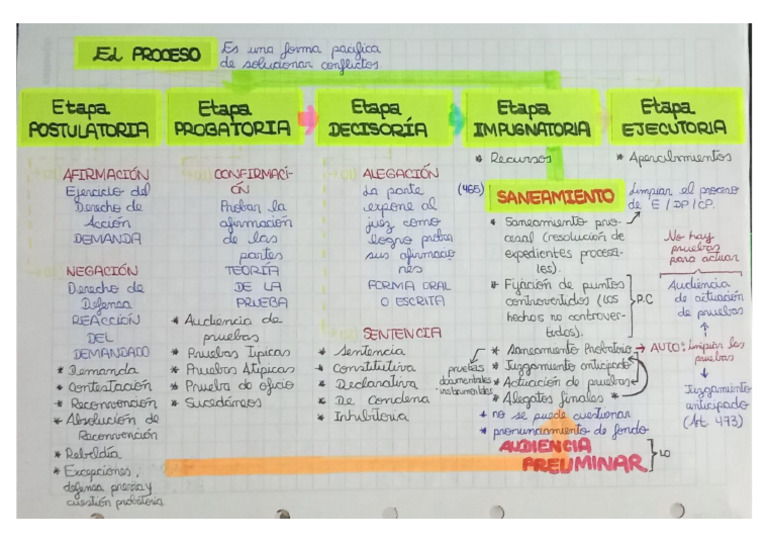 EL PROCESO
Es una forma pacífica
de solucionar conflictos
Etapa
POSTULATORIA
Etapa
PROBATORIA
Etapa
DECISORÍA
Etapa
IMPUGNATORIA
Etapa
EJECUTORIA
AFIRMACIÓN
Ejercicio del
Derecho de
Acción
DEMANDA
NEGACIÓN
Derecho de
Defensa
REACCIÓN
DEL
DEMANDADO
* Demanda
* Contestación
* Reconvención
* Absolución de
Reconvención
* Rebeldía
* Excepciones,
defensa previa y
cuestión probatoria
CONFIRMACI-
ÓN
Probar la
afirmación
de las
partes
TEORÍA
DE LA
PRUEBA
* Audiencia de
pruebas
* Pruebas Típicas
* Pruebas Atípicas
* Prueba de oficio
* Sucedáneos
ALEGACIÓN
La parte
expone al
juez como
logro probar
sus afirmacio
nes
FORMA ORAL
O ESCRITA
SENTENCIA
* Sentencia
* Constitutiva
* Declarativa
* De Condena
* Inhibitoria
* Recursos
(465)
SANEAMIENTO
* Saneamiento pro-
cesal (resolución de
expedientes procesa-
les).
* Fijación de puntos
controvertidos (los
hechos no controver-
tidos).
P.C
* Saneamiento Probatorio → AUTO: Limpiar las
pruebas
* Juzgamiento anticipado
* Actuación de pruebas
* Alegatos finales *
pruebas
documentales
instrumentales
* no se puede cuestionar
* pronunciamiento de fondo
AUDIENCIA
PRELIMINAR
LO
* Apercibimientos
Limpiar el proceso
de E / DP / CP.
No hay
pruebas
para actuar
Audiencia
de actuación
de pruebas
Juzgamiento
anticipado
(Art. 473)